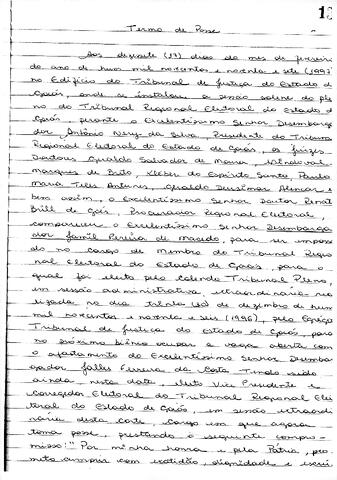 13
Termo de Posse
Aos dezesete (17) dias do mes de fevereiro
do ano de hum mil novecentos e noventa e sete (1997)
no Edifício do Tribunal de Justiça do Estado de
Goiás, onde se instalou a sessão solene do ple
no do Tribunal Regional Eleitoral do Estado de
Goiás, perante o Excelentíssimo Senhor Desembarga
dor Antônio Nery da Silva, Presidente do Tribunal
Regional Eleitoral do Estado de Goiás, os juízes
Doutores Geraldo Salvador de Moura,
Marques de Brito, Kleber do Espírito Santo, Paulo
Maria Teles Antunes, Geraldo Deusimar Alencar e
bem assim, o Excelentíssimo Senhor Doutor Renato
Brill de Góis, Procurador Regional Eleitoral,
compareceu o Excelentíssimo Senhor Desembarga
dor Jamil Pereira de Macedo, para ser imposs
do no cargo de Membro do Tribunal Regio
nal Eleitoral do Estado de Goiás, para o
qual foi eleito pelo colendo Tribunal Pleno,
em sessão administrativa extraordinária rea
lizada no dia trinta (30) de dezembro de hum
mil novecentos e noventa e seis (1996), pelo Egrégio
Tribunal de Justiça do Estado de Goiás, para
no próximo biênio ocupar a vaga aberta com
o afastamento do Excelentíssimo Senhor Desemba
gador Jalles Ferreira da Costa. Tendo sido
ainda nesta data, eleito Vice Presidente e
Corregedor Eleitoral do Tribunal Regional Elei
toral do Estado de Goiás, em sessão extraordi
nária desta corte, cargo em que agora
toma posse, prestando o seguinte compro-
misso: "Por minha honra e pela Pátria, pro-
meto cumprir com exatidão, dignidade e escrú